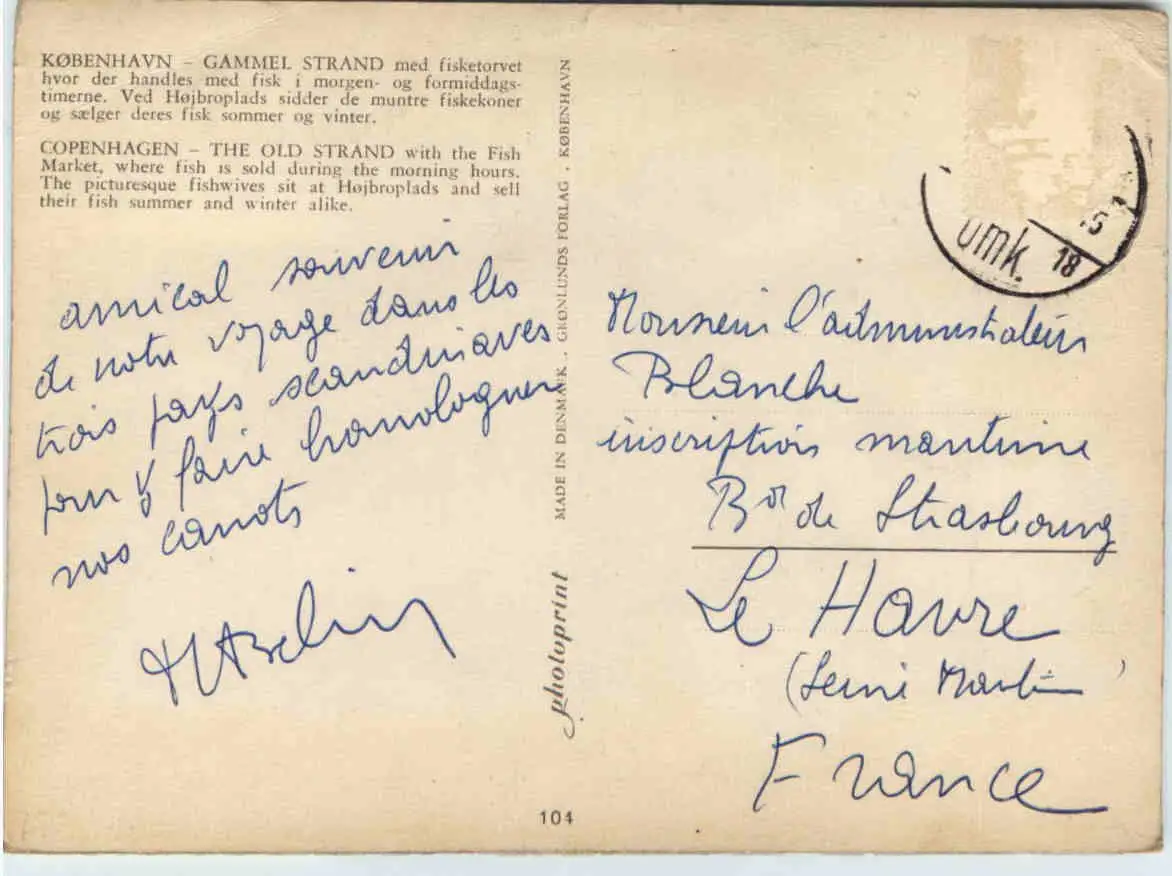 KØBENHAVN – GAMMEL STRAND med fisketorvet
hvor der handles med fisk i morgen- og formiddags-
timerne. Ved Højbroplads sidder de muntre fiskekoner
og sælger deres fisk sommer og vinter.
COPENHAGEN – THE OLD STRAND with the Fish
Market, where fish is sold during the morning hours.
The picturesque fishwives sit at Højbroplads and sell
their fish summer and winter alike.
amical souvenir
de notre voyage dans les
trois pays scandinaves
pour y faire homologuer
nos canots
MADE IN DENMARK . GRØNLUNDS FORLAG . KØBENHAVN
photoprint
104
omk.
18
Monsieur l'administrateur
Blanche
inscription maritime
Bd de Strasbourg
Le Havre
(Seine Maritime)
France